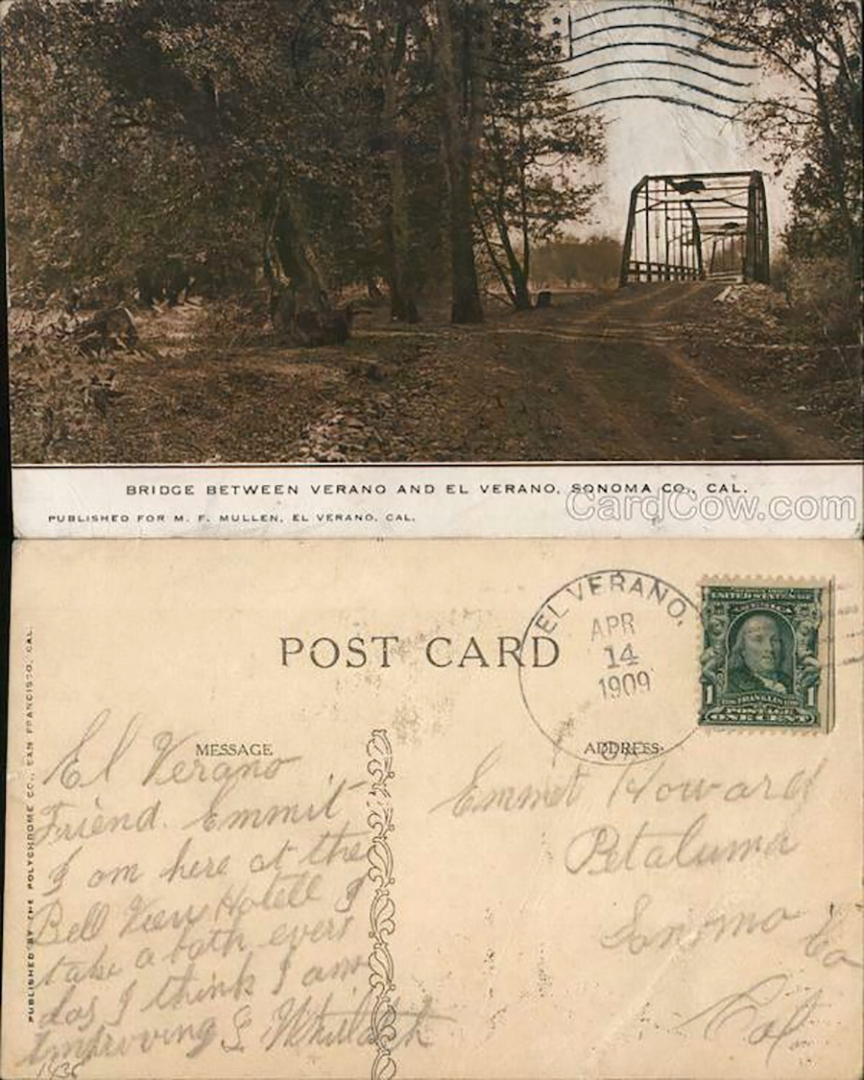 BRIDGE BETWEEN VERANO AND EL VERANO, SONOMA CO., CAL.
CardCow.com
PUBLISHED FOR M. F. MULLEN, EL VERANO, CAL.
POST CARD
EL VERANO,
APR
14
1909
CA
UNITED STATES OF
AMERICA
1 FRANKLIN 1
POSTAGE
ONE CENT
MESSAGE
ADDRESS
PUBLISHED BY THE POLYCHROME CO., SAN FRANCISCO, CAL.
El Verano
Friend. Emmit
I am here at the
Bell View Hotell I
take a bath every
day I think I am
improving
Emmet Howard
Petaluma
Sonoma Co
Cal